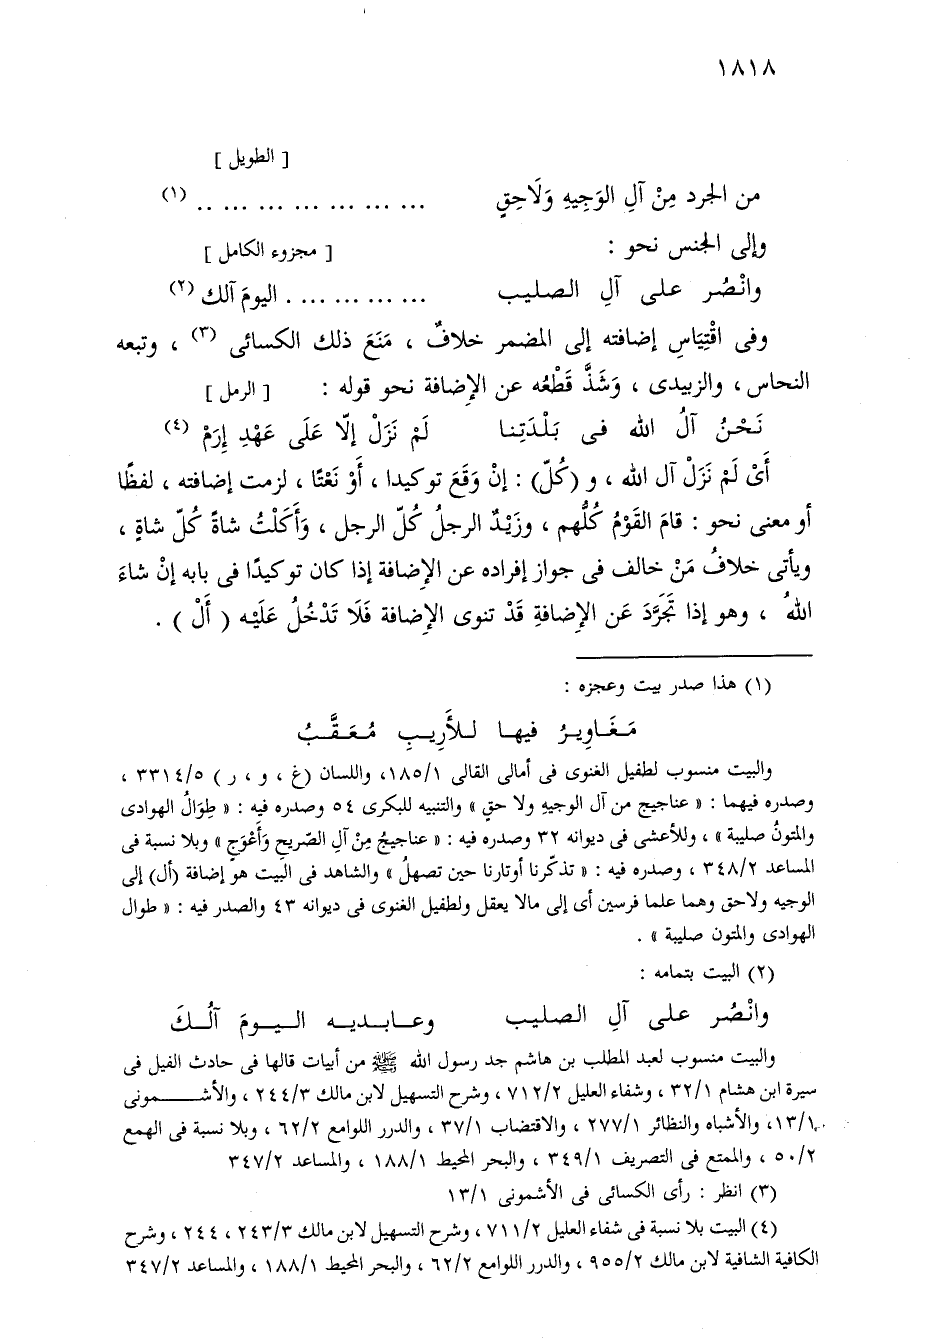 ١٨١٨
[ الطويل ]
من الجرد مِنْ آلِ الوَجِيهِ وَلَاحِقٍ ... ... ... ... ... ... .. (١)
وإلى الجنس نحو : [ مجزوء الكامل ]
وانْصُر على آلِ الصليب ... ... ... ... . اليومَ آلك (٢)
وفى اقْتِيَاسِ إضافته إلى المضمر خلافٌ ، مَنَعَ ذلك الكسائى (٣) ، وتبعه
النحاس ، والزبيدى ، وَشَذَّ قَطْعُه عن الإضافة نحو قوله : [ الرمل ]
نَحْنُ آلُ الله فى بَلْدَتِنا لَمْ نَزَلْ إلّا عَلَى عَهْدِ إِرَمْ (٤)
أَىْ لَمْ نَزَلْ آل الله ، و (كُلّ) : إنْ وَقَعَ توكيدا ، أَوْ نَعْتًا ، لزمت إضافته ، لفظًا
أو معنى نحو : قامَ القَوْمُ كُلُّهم ، وزَيْدٌ الرجلُ كُلّ الرجل ، وَأَكَلْتُ شاةً كُلّ شاةٍ ،
ويأتى خلافُ مَنْ خالف فى جواز إفراده عن الإضافة إذا كان توكيدًا فى بابه إنْ شاءَ
اللهُ ، وهو إذا تَجَرَّدَ عَن الإضافةِ قَدْ تنوى الإضافة فَلَا تَدْخُلُ عَلَيْه ( أَلْ ) .
(١) هذا صدر بيت وعجزه :
مَغَاوِيرُ فيها للأَرِيبِ مُعَقَّبُ
والبيت منسوب لطفيل الغنوى فى أمالى القالى ١٨٥/١، واللسان (غ ، و ، ر) ٣٣١٤/٥ ،
وصدره فيهما : « عناجيج من آل الوجيهِ ولا حقٍ » والتنبيه للبكرى ٥٤ وصدره فيه : « طِوَالُ الهوادى
والمتونُ صليبة » ، وللأعشى فى ديوانه ٣٢ وصدره فيه : « عناجيجُ مِنْ آلِ الصّريحِ وَأَعْوَجٍ » وبلا نسبة فى
المساعد ٣٤٨/٢ ، وصدره فيه : « تذكّرنا أوتارنا حين تصهلُ » والشاهد فى البيت هو إضافة (أل) إلى
الوجيه ولاحق وهما علما فرسين أى إلى مالا يعقل ولطفيل الغنوى فى ديوانه ٤٣ والصدر فيه : « طوال
الهوادى والمتون صليبة » .
(٢) البيت بتمامه :
وانْصُر على آلِ الصليب وعابديه اليومَ آلُكَ
والبيت منسوب لعبد المطلب بن هاشم جد رسول الله ﷺ من أبيات قالها فى حادث الفيل فى
سيرة ابن هشام ٣٢/١ ، وشفاء العليل ٧١٢/٢ ، وشرح التسهيل لابن مالك ٢٤٤/٣ ، والأشمونى
١٣/١، والأشباه والنظائر ٢٧٧/١ ، والاقتضاب ٣٧/١ ، والدرر اللوامع ٦٢/٢ ، وبلا نسبة فى الهمع
٥٠/٢ ، والممتع فى التصريف ٣٤٩/١ ، والبحر المحيط ١٨٨/١ ، والمساعد ٣٤٧/٢
(٣) انظر : رأى الكسائى فى الأشمونى ١٣/١
(٤) البيت بلا نسبة فى شفاء العليل ٧١١/٢ ، وشرح التسهيل لابن مالك ٢٤٣/٣ ، ٢٤٤ ، وشرح
الكافية الشافية لابن مالك ٩٥٥/٢ ، والدرر اللوامع ٦٢/٢ ، والبحر المحيط ١٨٨/١ ، والمساعد ٣٤٧/٢